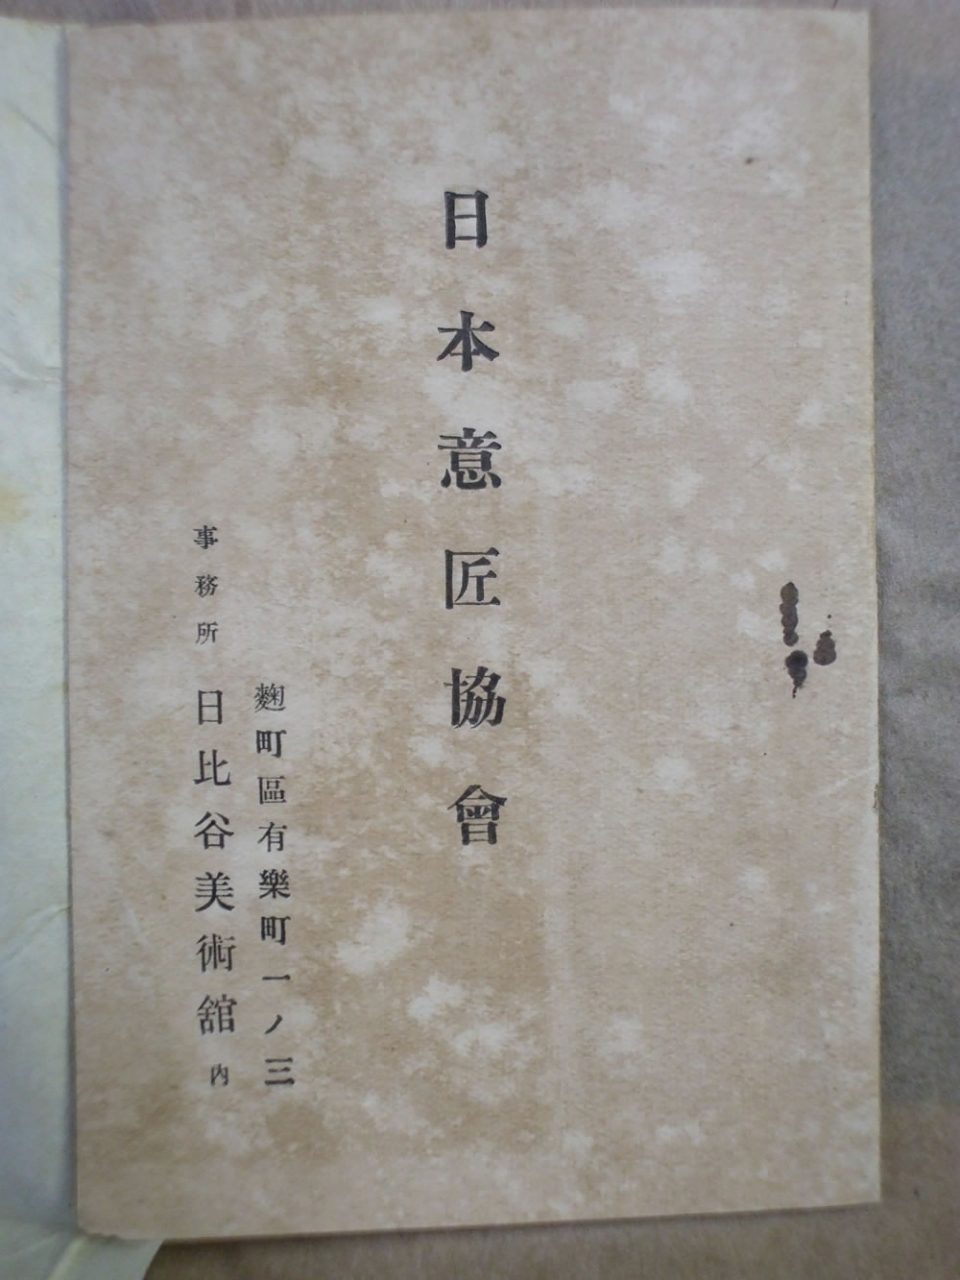 日本意匠協會
麴町區有樂町一ノ三
事務所 日比谷美術舘內